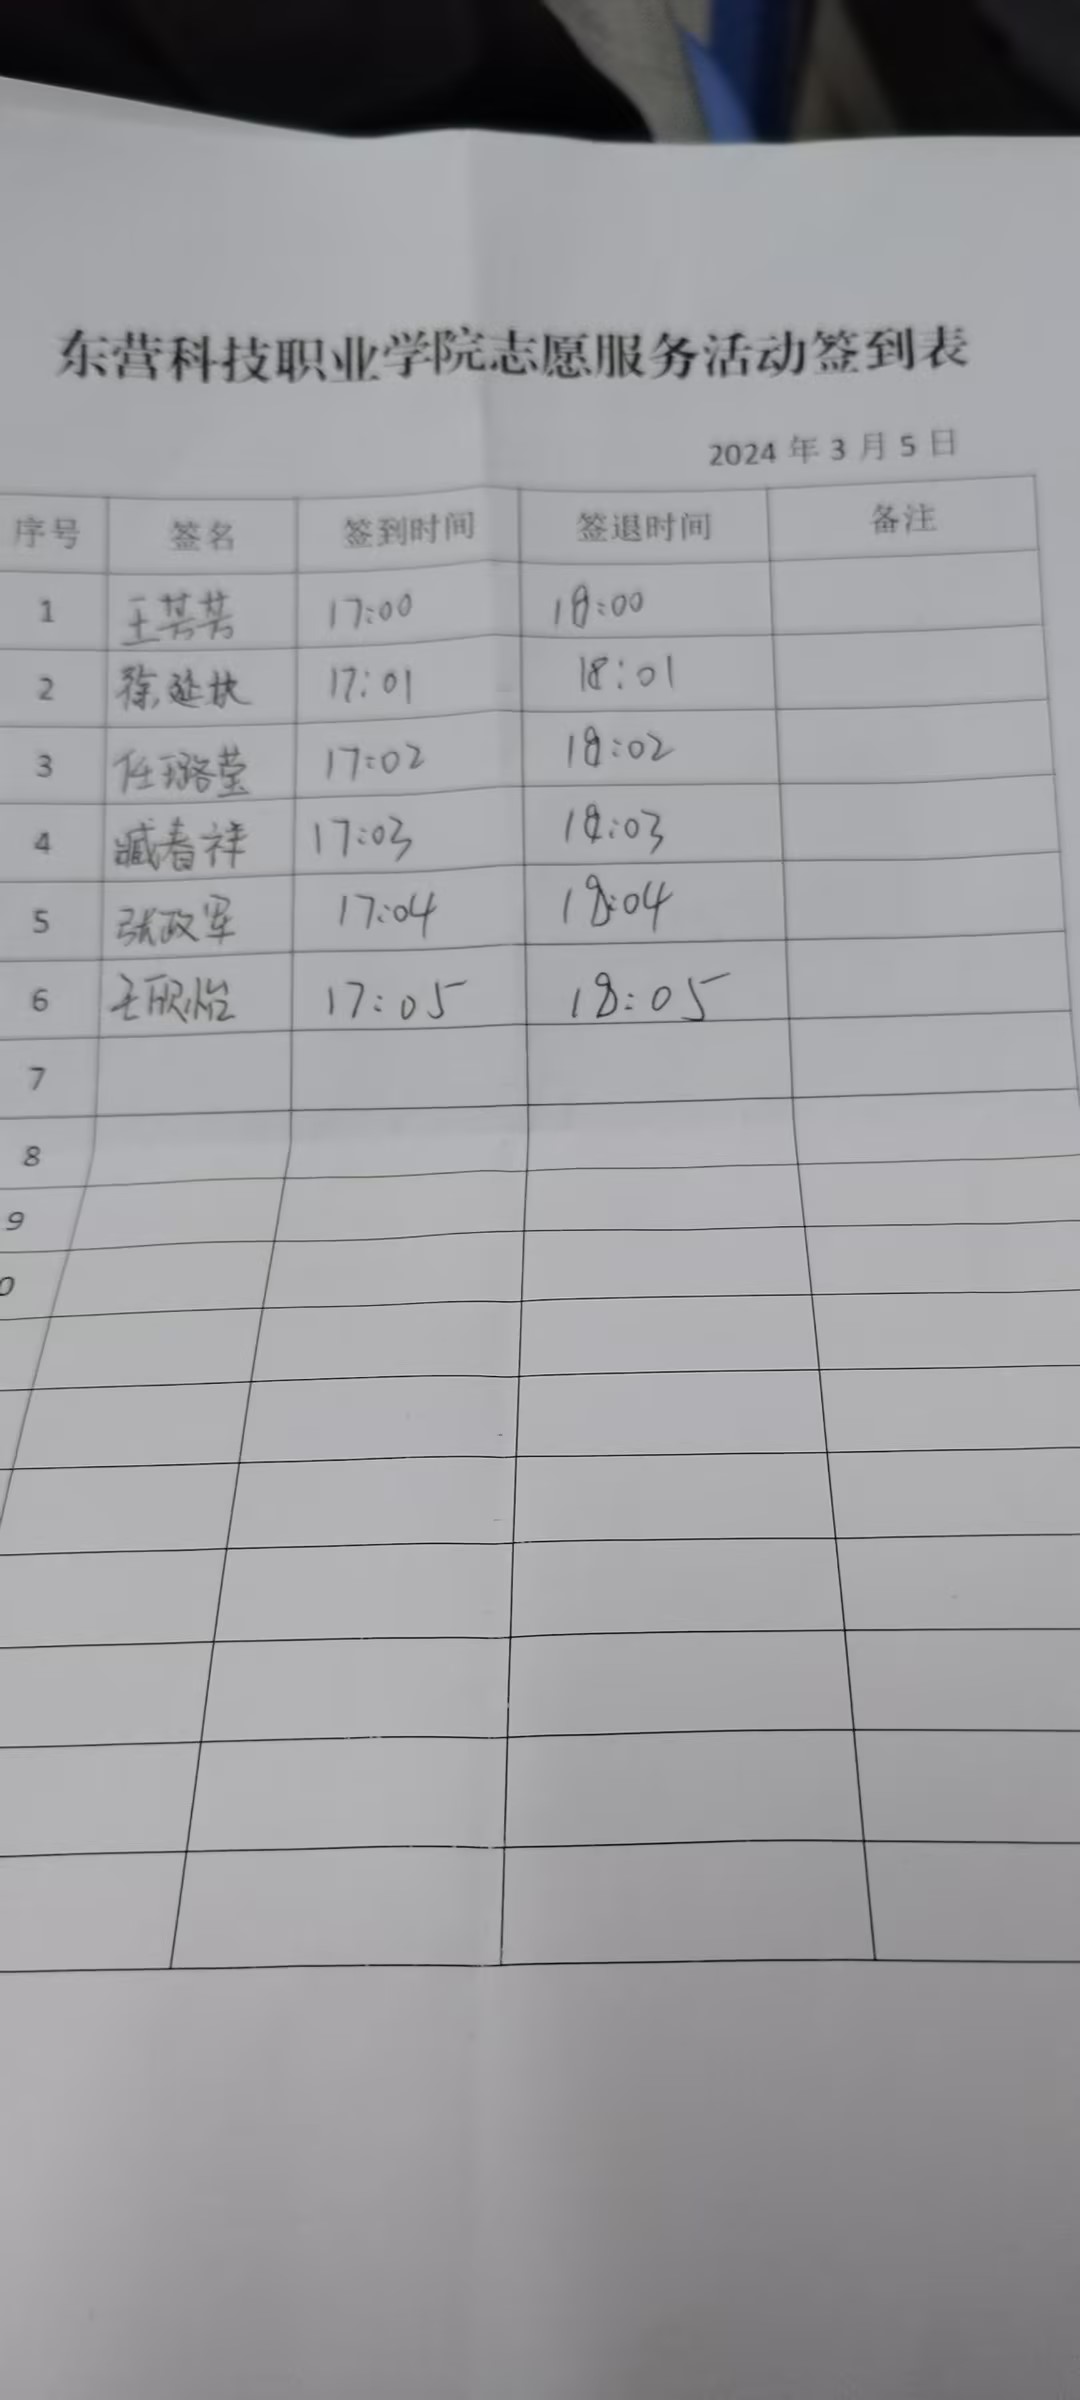 东营科技职业学院志愿服务活动签到表
2024 年 3 月 5 日
序号 签名 签到时间 签退时间 备注
1 王芸芸 17:00 18:00
2 徐延 17:01 18:01
3 任璐莹 17:02 18:02
4 臧春祥 17:03 18:03
5 张政军 17:04 18:04
6 王欣怡 17:05 18:05
7
8
9
0